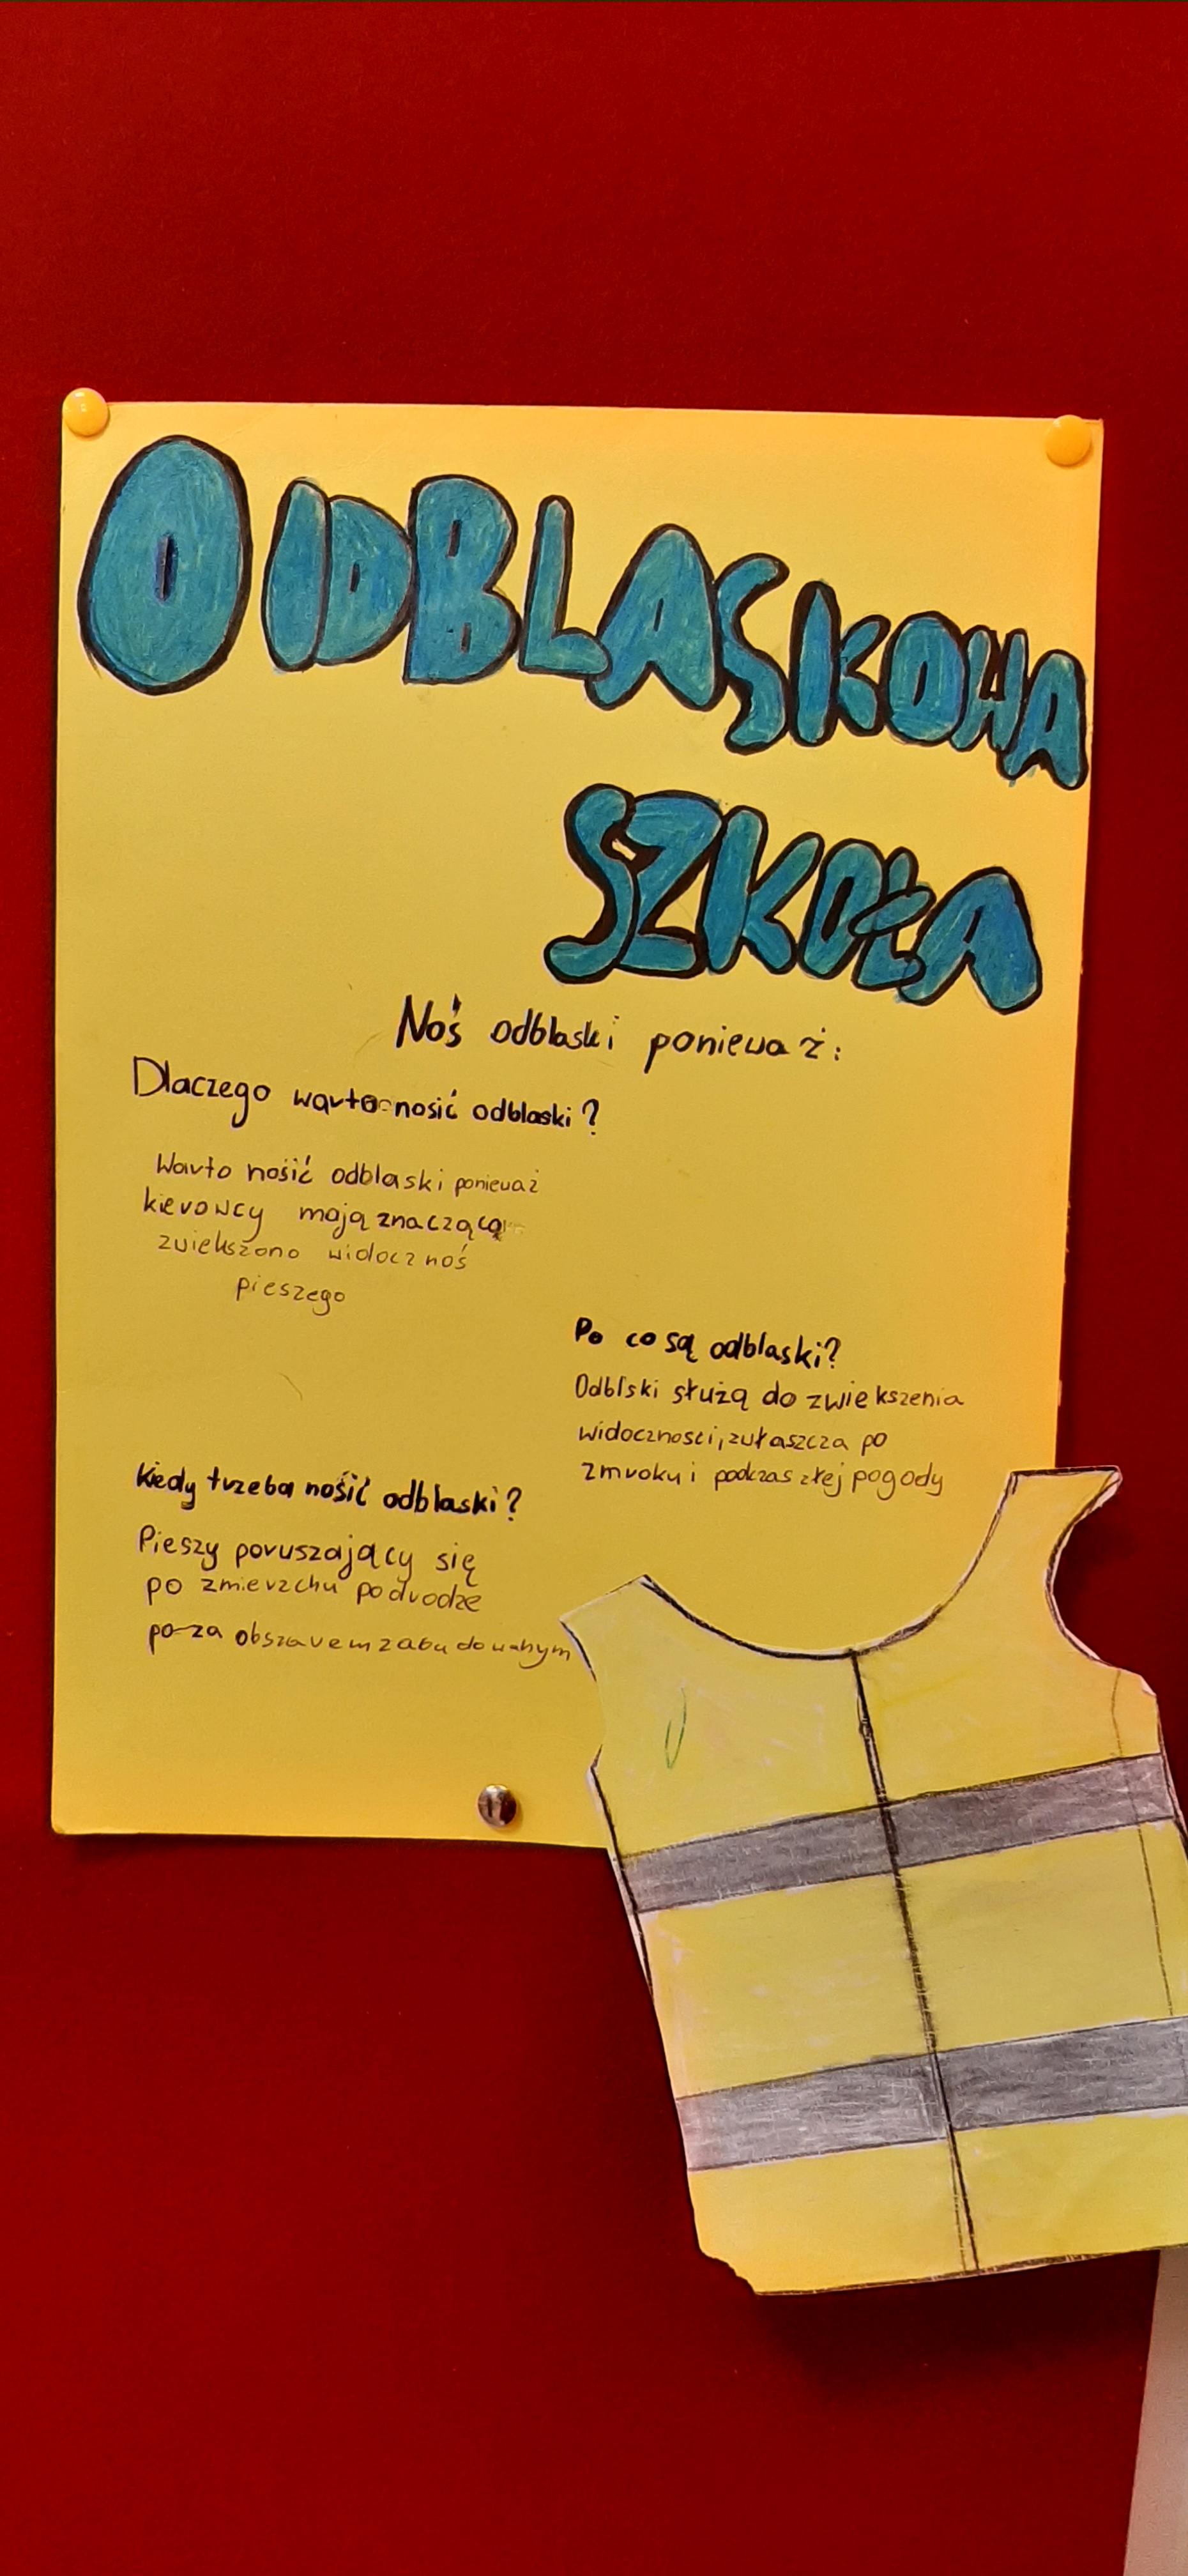 ODBLASKOWA
SZKOŁA
Noś odblaski ponieważ:
Dlaczego warto nosić odblaski?
Warto nośić odblaski ponieważ
kierowcy mają znaczącą
zwiekszono widocznoś
pieszego
Po co są odblaski?
Odblski służą do zwiekszenia
widocznosci, zwłaszcza po
zmroku i podczas złej pogody
Kiedy trzeba nośić odblaski?
Pieszy poruszający się
po zmierzchu po drodze
po za obszarem zabudowanym